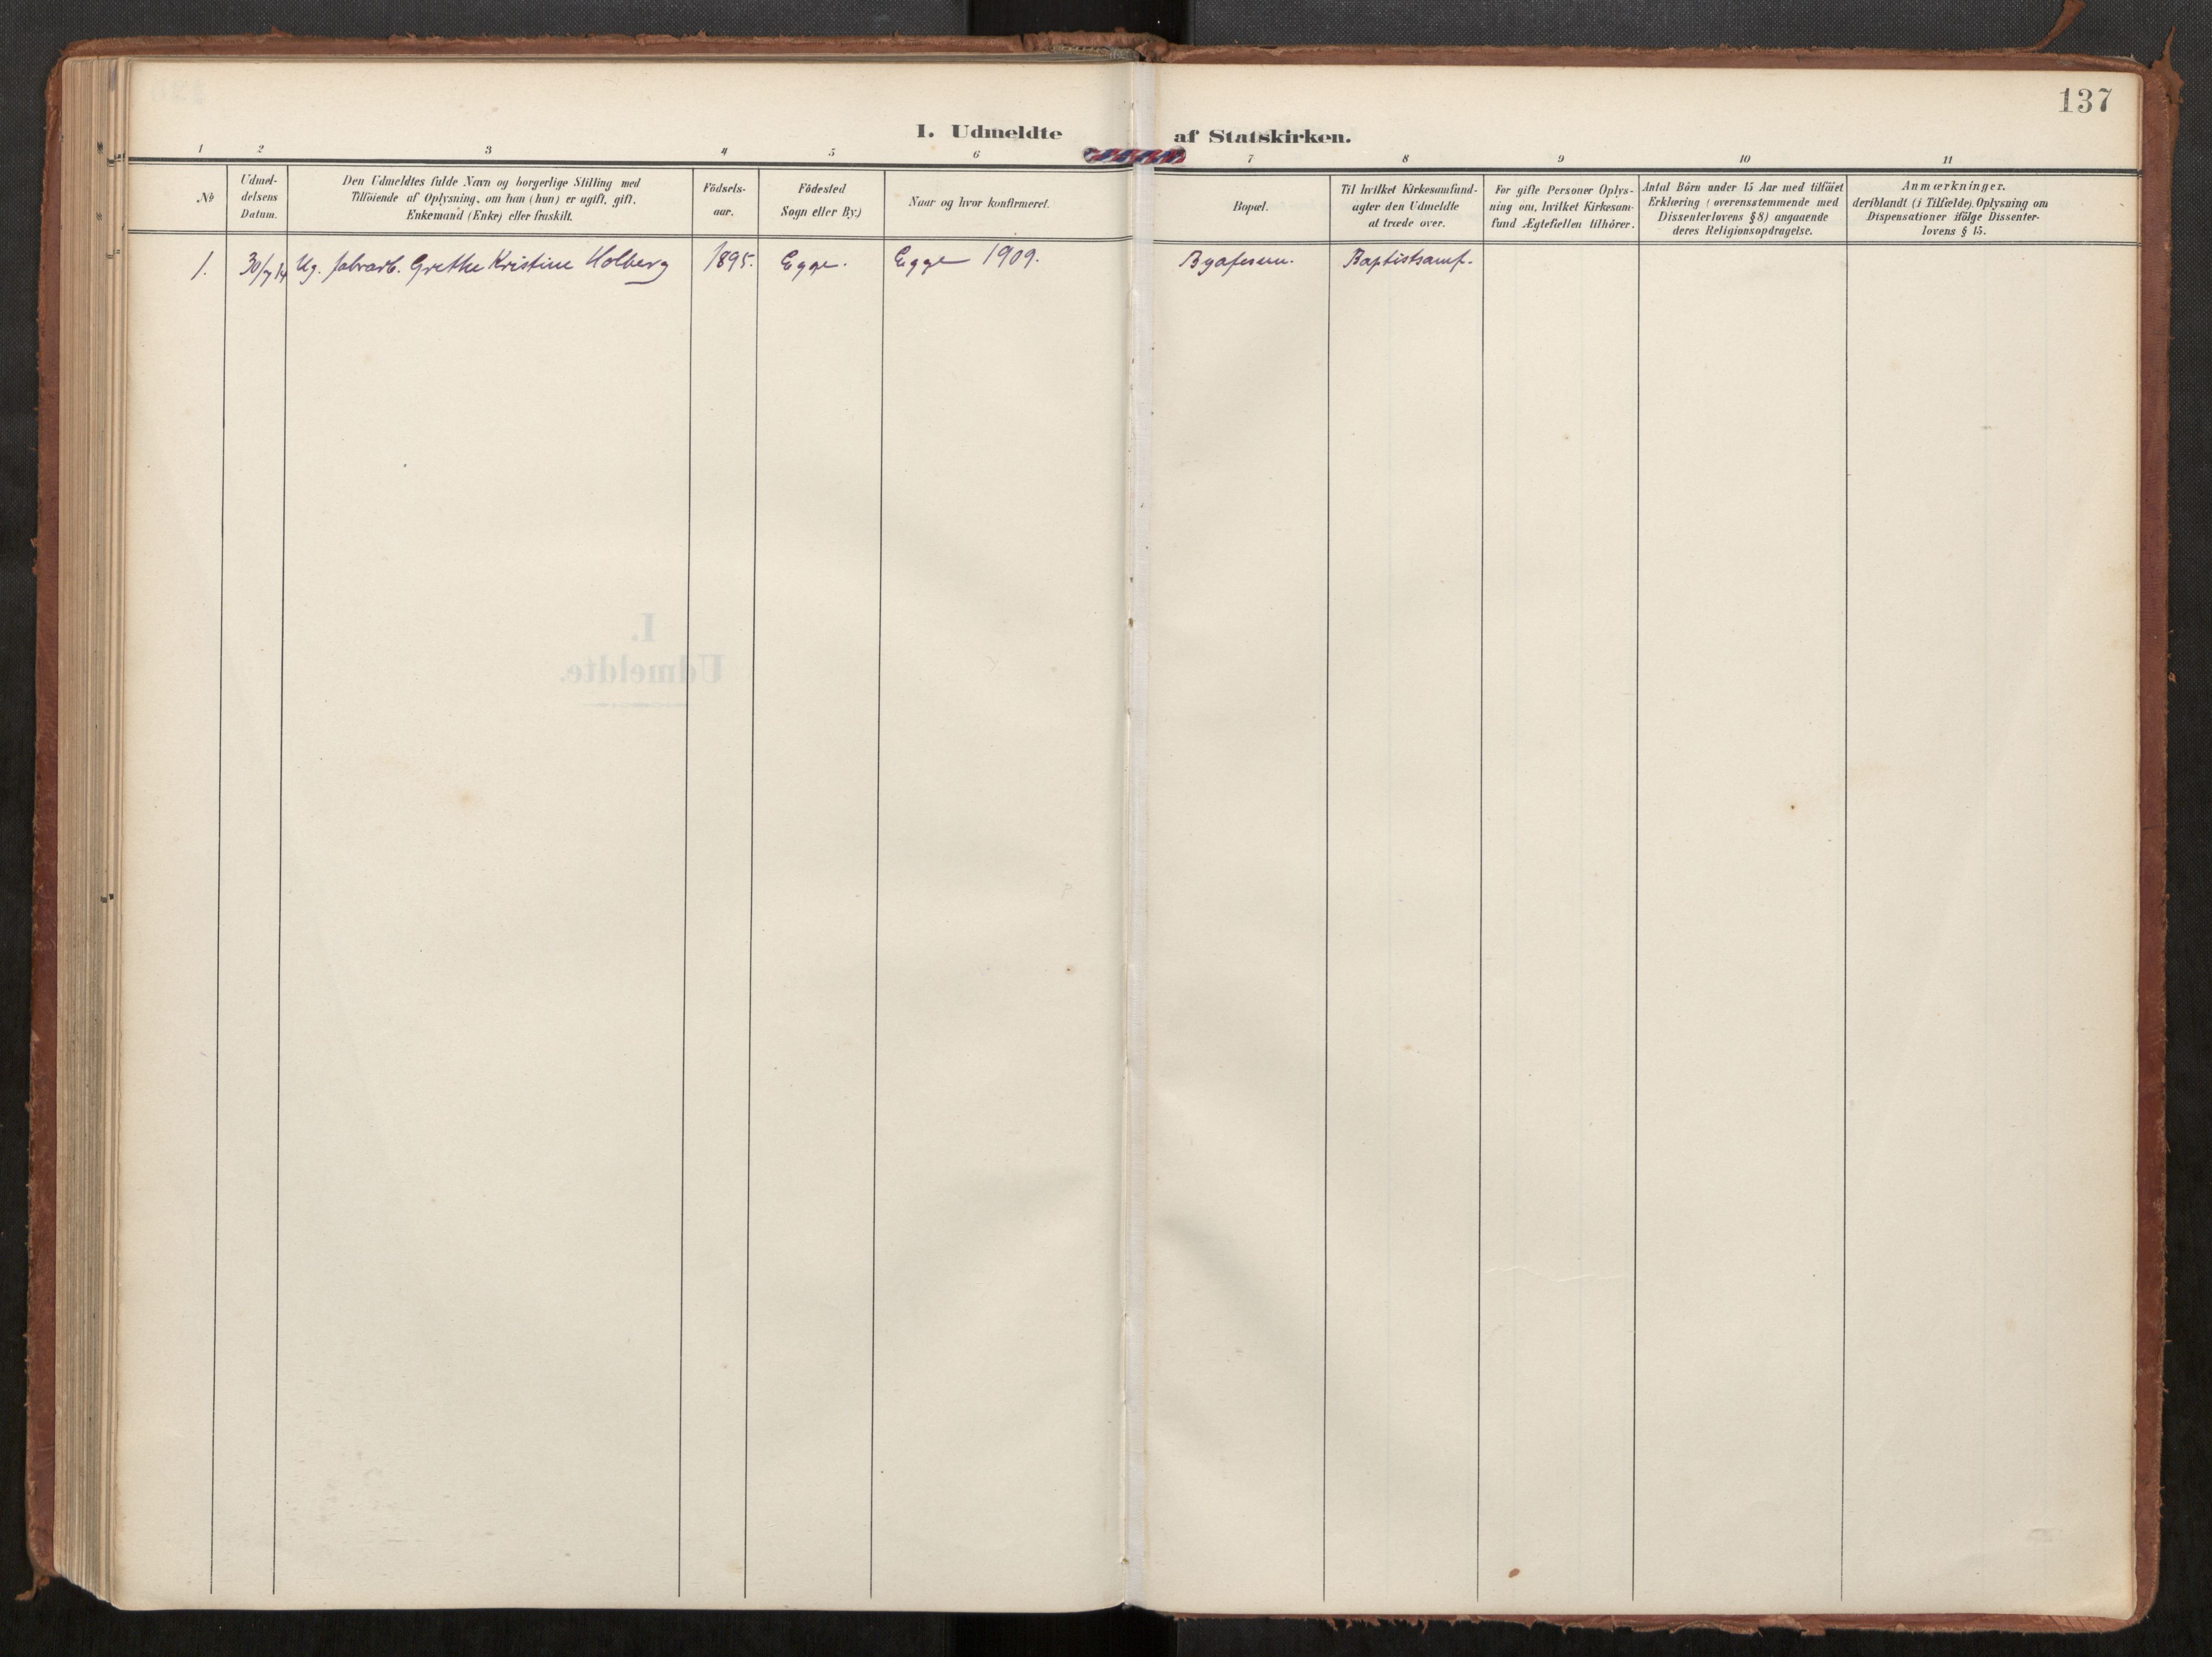 137
1. Udmeldte af Statskirken.
1 2 3 4 5 6 7 8 9 10 11
№
Udmel-
delsens
Datum.
Den Udmeldtes fulde Navn og borgerlige Stilling med
Tilföiende af Oplysning, om han (hun) er ugift, gift,
Enkemand (Enke) eller fraskilt.
Födsels-
aar.
Födested
Sogn eller By.)
Naar og hvor konfirmeret.
Bopæl.
Til hvilket Kirkesamfund-
agter den Udmeldte
at træde over.
For gifte Personer Oplys-
ning om, hvilket Kirkesam-
fund Ægtefællen tilhörer.
Antal Börn under 15 Aar med tilföiet
Erklæring (overensstemmende med
Dissenterlovens § 8) angaaende
deres Religionsopdragelse.
Anmærkninger.
deriblandt (i Tilfælde) Oplysning om
Dispensationer ifölge Dissenter-
lovens § 15.
1. 30/7 14 Ug. fabrarb. Grethe Kristine Holberg 1895. Egge. Egge 1909. Byafossen. Baptistsamf.
I.
Udmeldte.